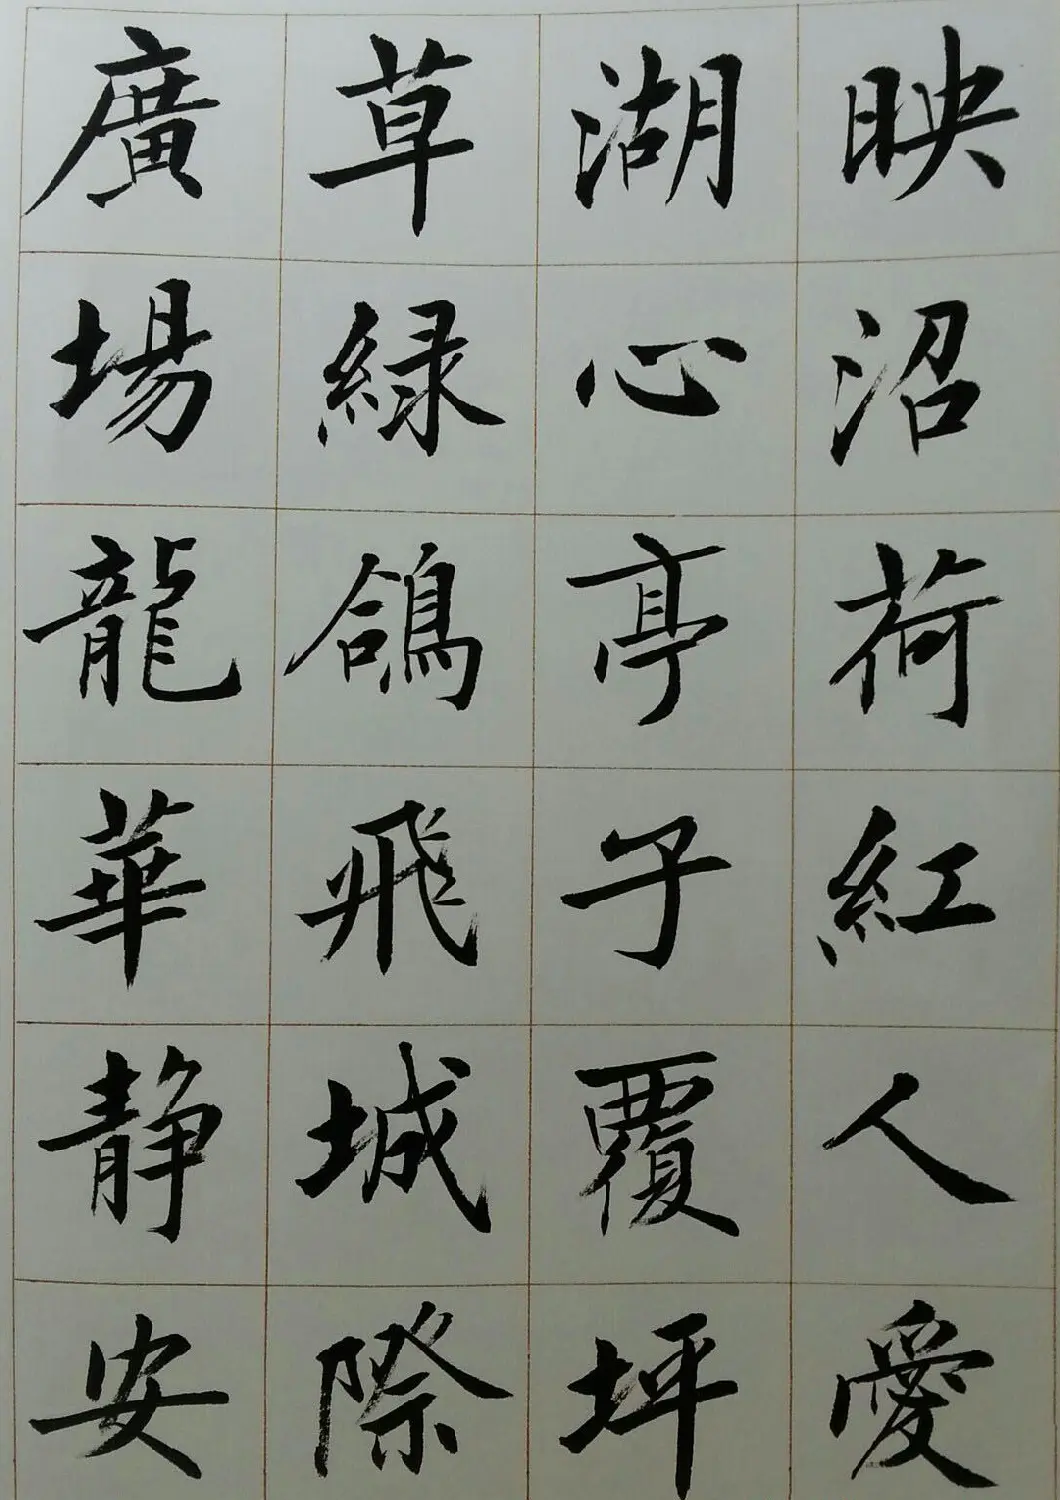 映沼荷紅人愛
湖心亭子覆坪
草緑鴿飛城際
廣場龍華静安